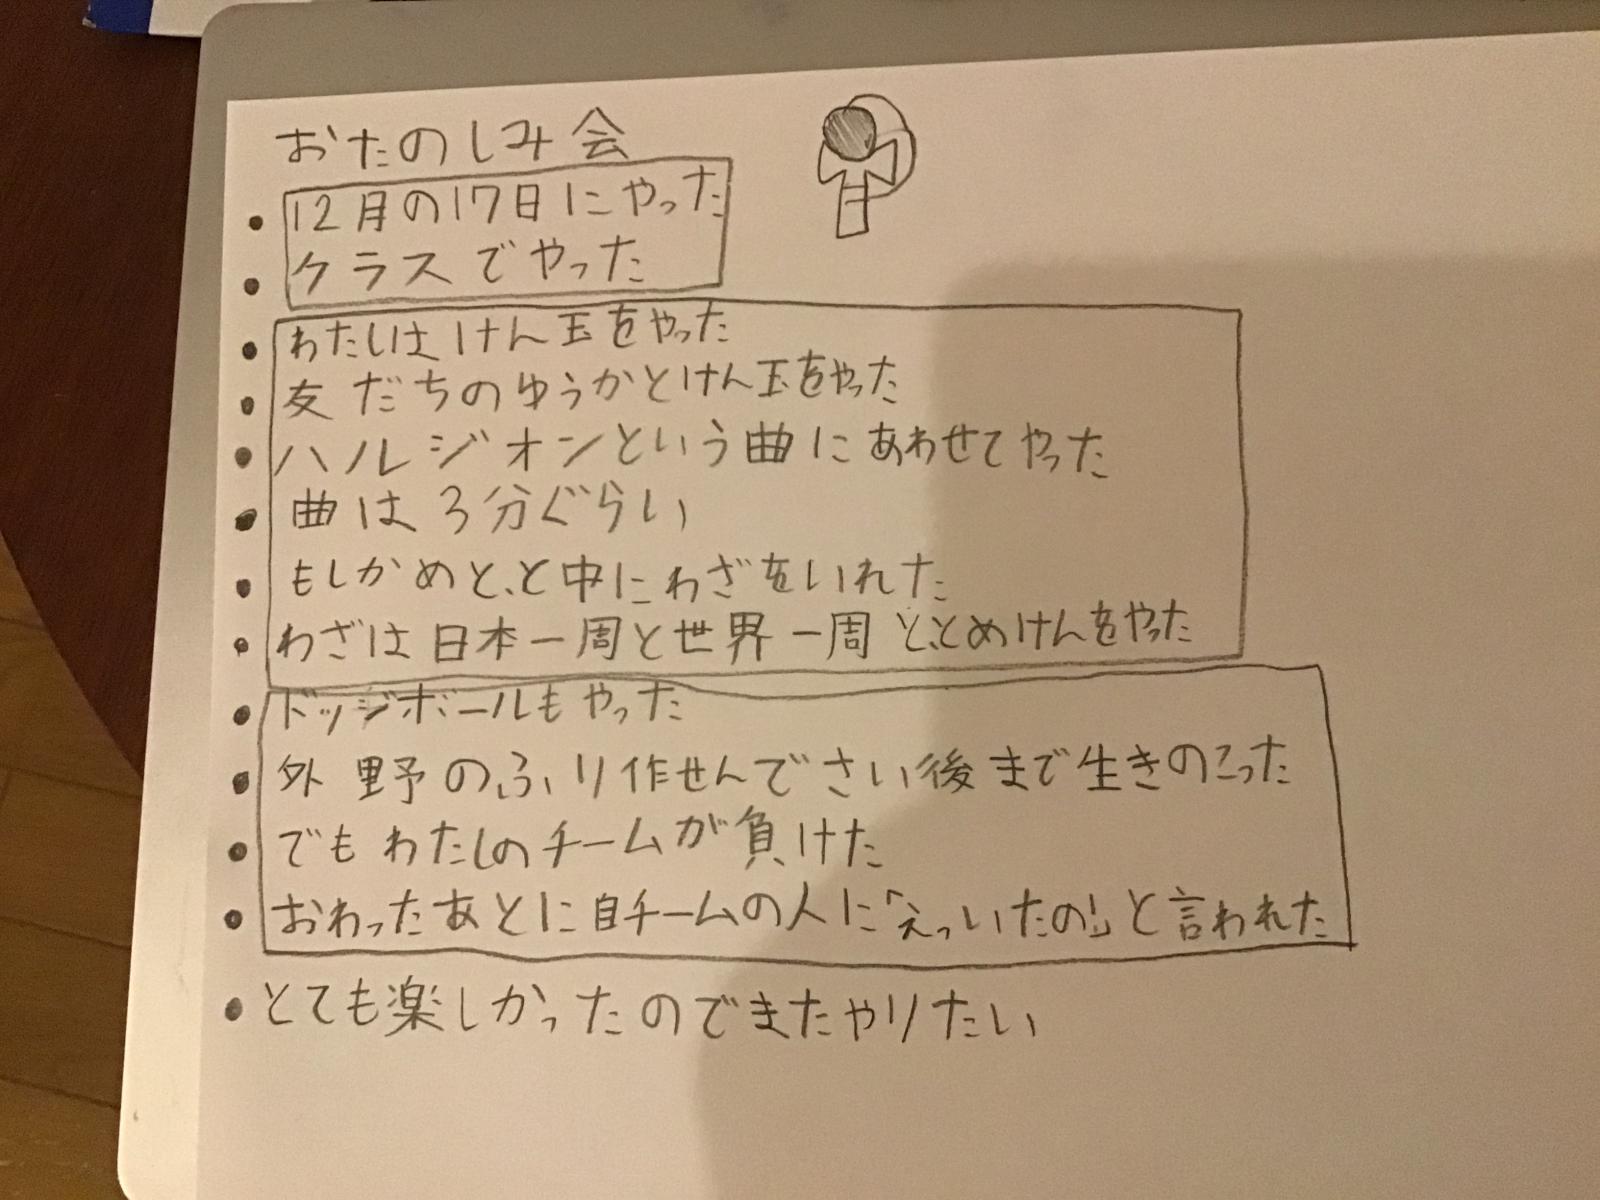 おたのしみ会
・12月の17日にやった
・クラスでやった
・わたしはけん玉をやった
・友だちのゆうかとけん玉をやった
・ハルジオンという曲にあわせてやった
・曲は3分ぐらい
・もしかめと、と中にわざをいれた
・わざは日本一周と世界一周と、とめけんをやった
・ドッジボールもやった
・外野のふり作せんでさい後まで生きのこった
・でもわたしのチームが負けた
・おわったあとに自チームの人に「えっいたの!」と言われた
・とても楽しかったのでまたやりたい